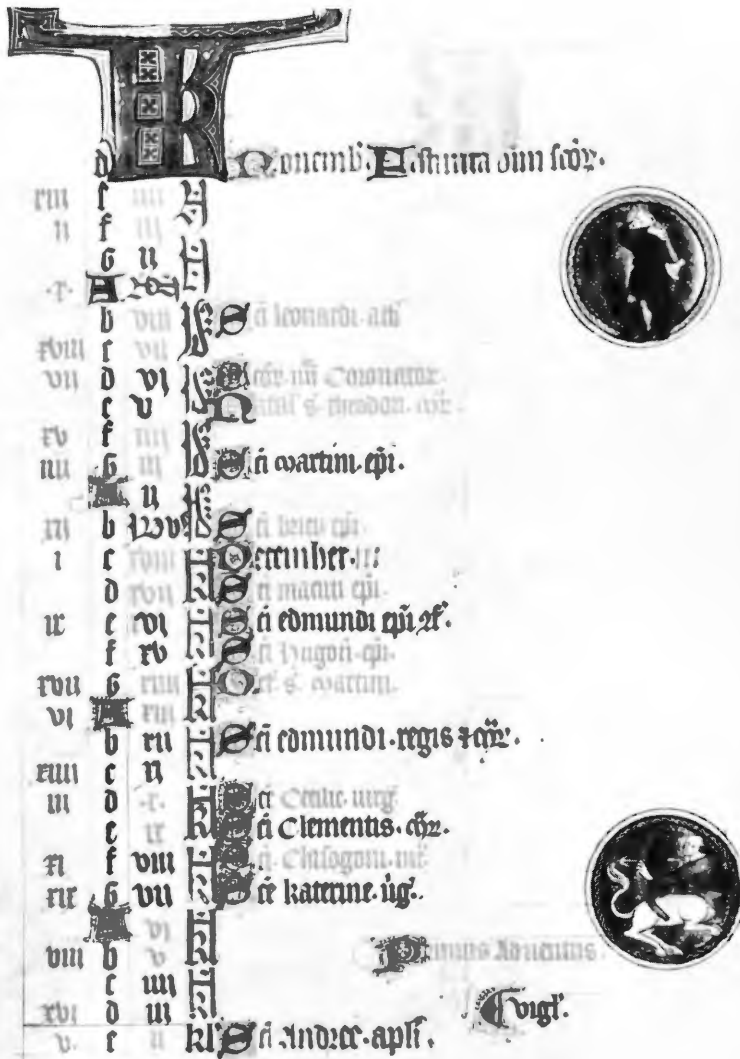 d Nouemb. Festiuita oim scor.
xiii e iiii
ii f iii
G ii
x A
b viii Sci leonardi. abb
xviii c vii
vii d vi Scor. iiii Coronator.
e v Natal s. theodori. mr.
xv f iiii
iiii G iii Sci martini. epi.
A ii
xii b Idus Sci bricii epi.
i c xviii December.
d xvii Sci macuti epi.
ix e xvi Sci edmundi epi 2 cf.
f xv Sci hugoni. epi.
xvii G xiiii Oct s. martini.
vi A xiii
b xii Sci edmundi. regis 2 mr.
xiiii c xi
iii d x Sce Cecilie. uirg
e ix Sci Clementis. mr.
xi f viii Sci Chrisogoni. mr.
xix G vii Sce katerine. uig.
A vi
viii b v Primus Aduentus.
c iiii
xvi d iii vigl.
v e ii kl Sci Andree. apli.